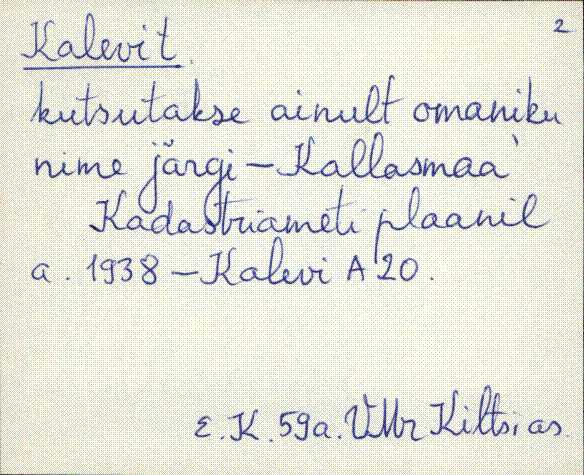 2
Kalevit
kutsutakse ainult omaniku
nime järgi – Kallasmaa`
Kadastriameti plaanil
a. 1938 – Kalevi A 20.
E. K. 59a. VMr Kiltsi as.